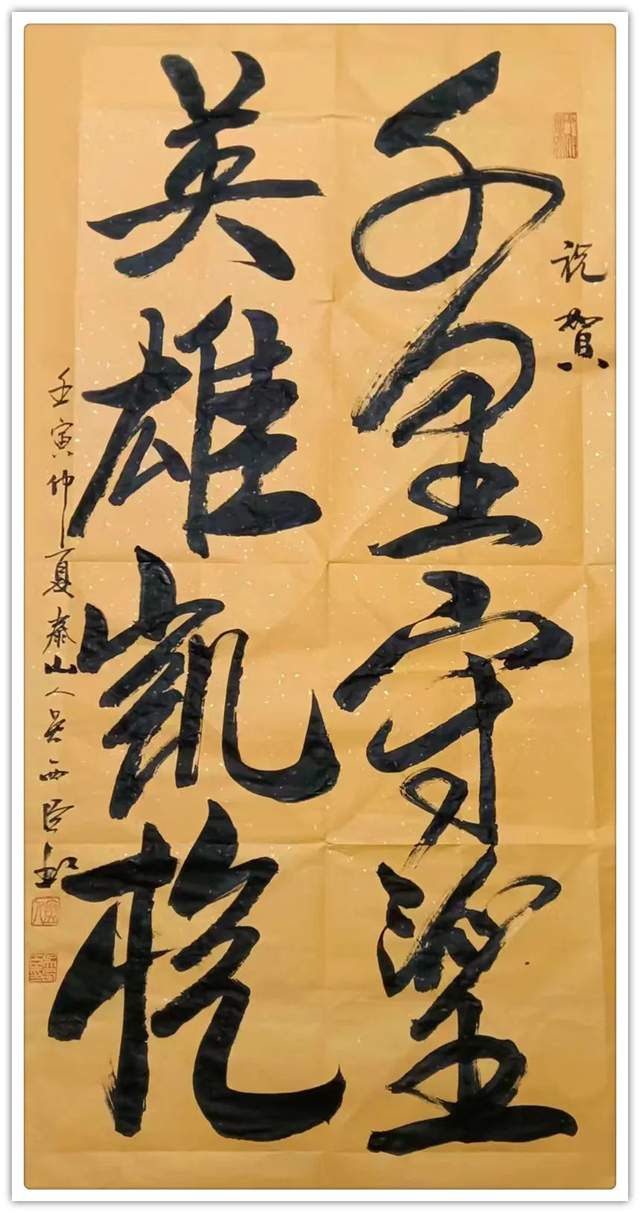 祝賀
千里守望
英雄凯旋
壬寅仲夏泰山人吴西臣